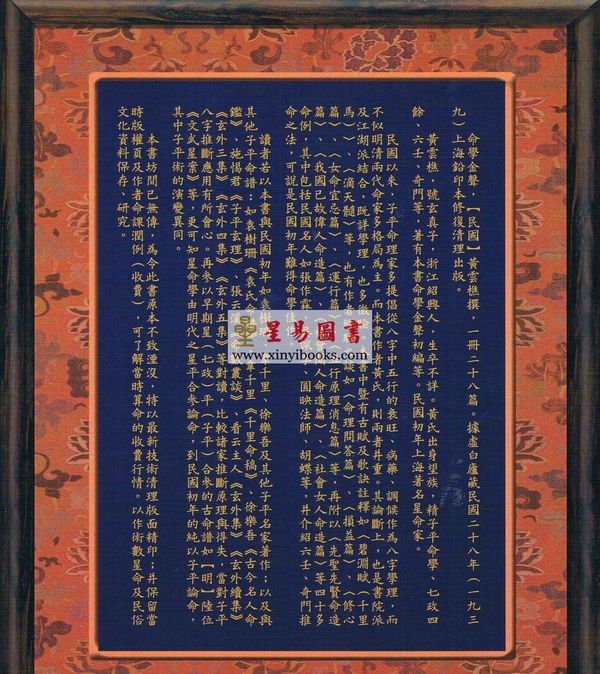 命學金聲，【民國】黃雲樵撰，一冊二十八篇。據虛白廬藏民國二十八年（一九三
九）上海鉛印本修復清理出版。
黃雲樵，號玄真子，浙江紹興人，生卒不詳。黃氏出身望族，精子平命學、七政四
餘、六壬、奇門等，著有本書命學金聲初編等。民國初年上海著名星命家。
民國以來，子平命理家多提倡從八字中五行的衰旺、病藥、調候作為八字學理，而
不似明清兩代命家多格局為主。而本書作者黃氏，則兩者并重。其論斷上，也是書院派
及江湖派結合，既詳學理，也多徵驗。書中暨有古賦及歌訣註釋如（碧淵賦）（千里
馬）、（滴天髓）等，也有作者談如（命理問答篇）、（損益篇）、（修心
篇）、（女命宜忌篇）、（運行篇）行原理消息篇）等，再附以（先聖先賢命造
篇）、（我國已故偉人命造篇）、人命造篇）、（社會女人命造篇）等四十多
命例，其中包括民國名人如張作霖、圓映法師、胡蝶等，并介紹六壬、奇門推
命之法，可說是民國初年難得命學佳作。
讀者若以本書與民國初年如袁樹千里、徐樂吾及其他子平名家著作；以及與
其他子平命譜：如袁樹珊《袁氏命韋千里《千里命稿》、徐樂吾《古今名人命
鑑》、施惕君《子平玄理》、張云溪叢談》、看云主人《玄外集》《玄外續集》
《玄外三集》《玄外四集》《玄外五集》等對讀，比較諸家推斷原理與得失，當對子平
八字推斷應用有所會心。再參以早期星（七政）平（子平）合參的古命譜如【明】陸位
《文武星案》等，更可知星命學由明代之星平合參論命，到民國初年的純以子平論命，
其中子平術的演變異同。
本書坊間已無傳，為令此書原本不致湮沒，特以最新技術清理版面精印；并保留當
時版權頁及作者命課潤例（收費），可了解當時算命的收費行情。以作術數星命及民俗
文化資料保存、研究。
星易圖書
www.xinyibooks.com